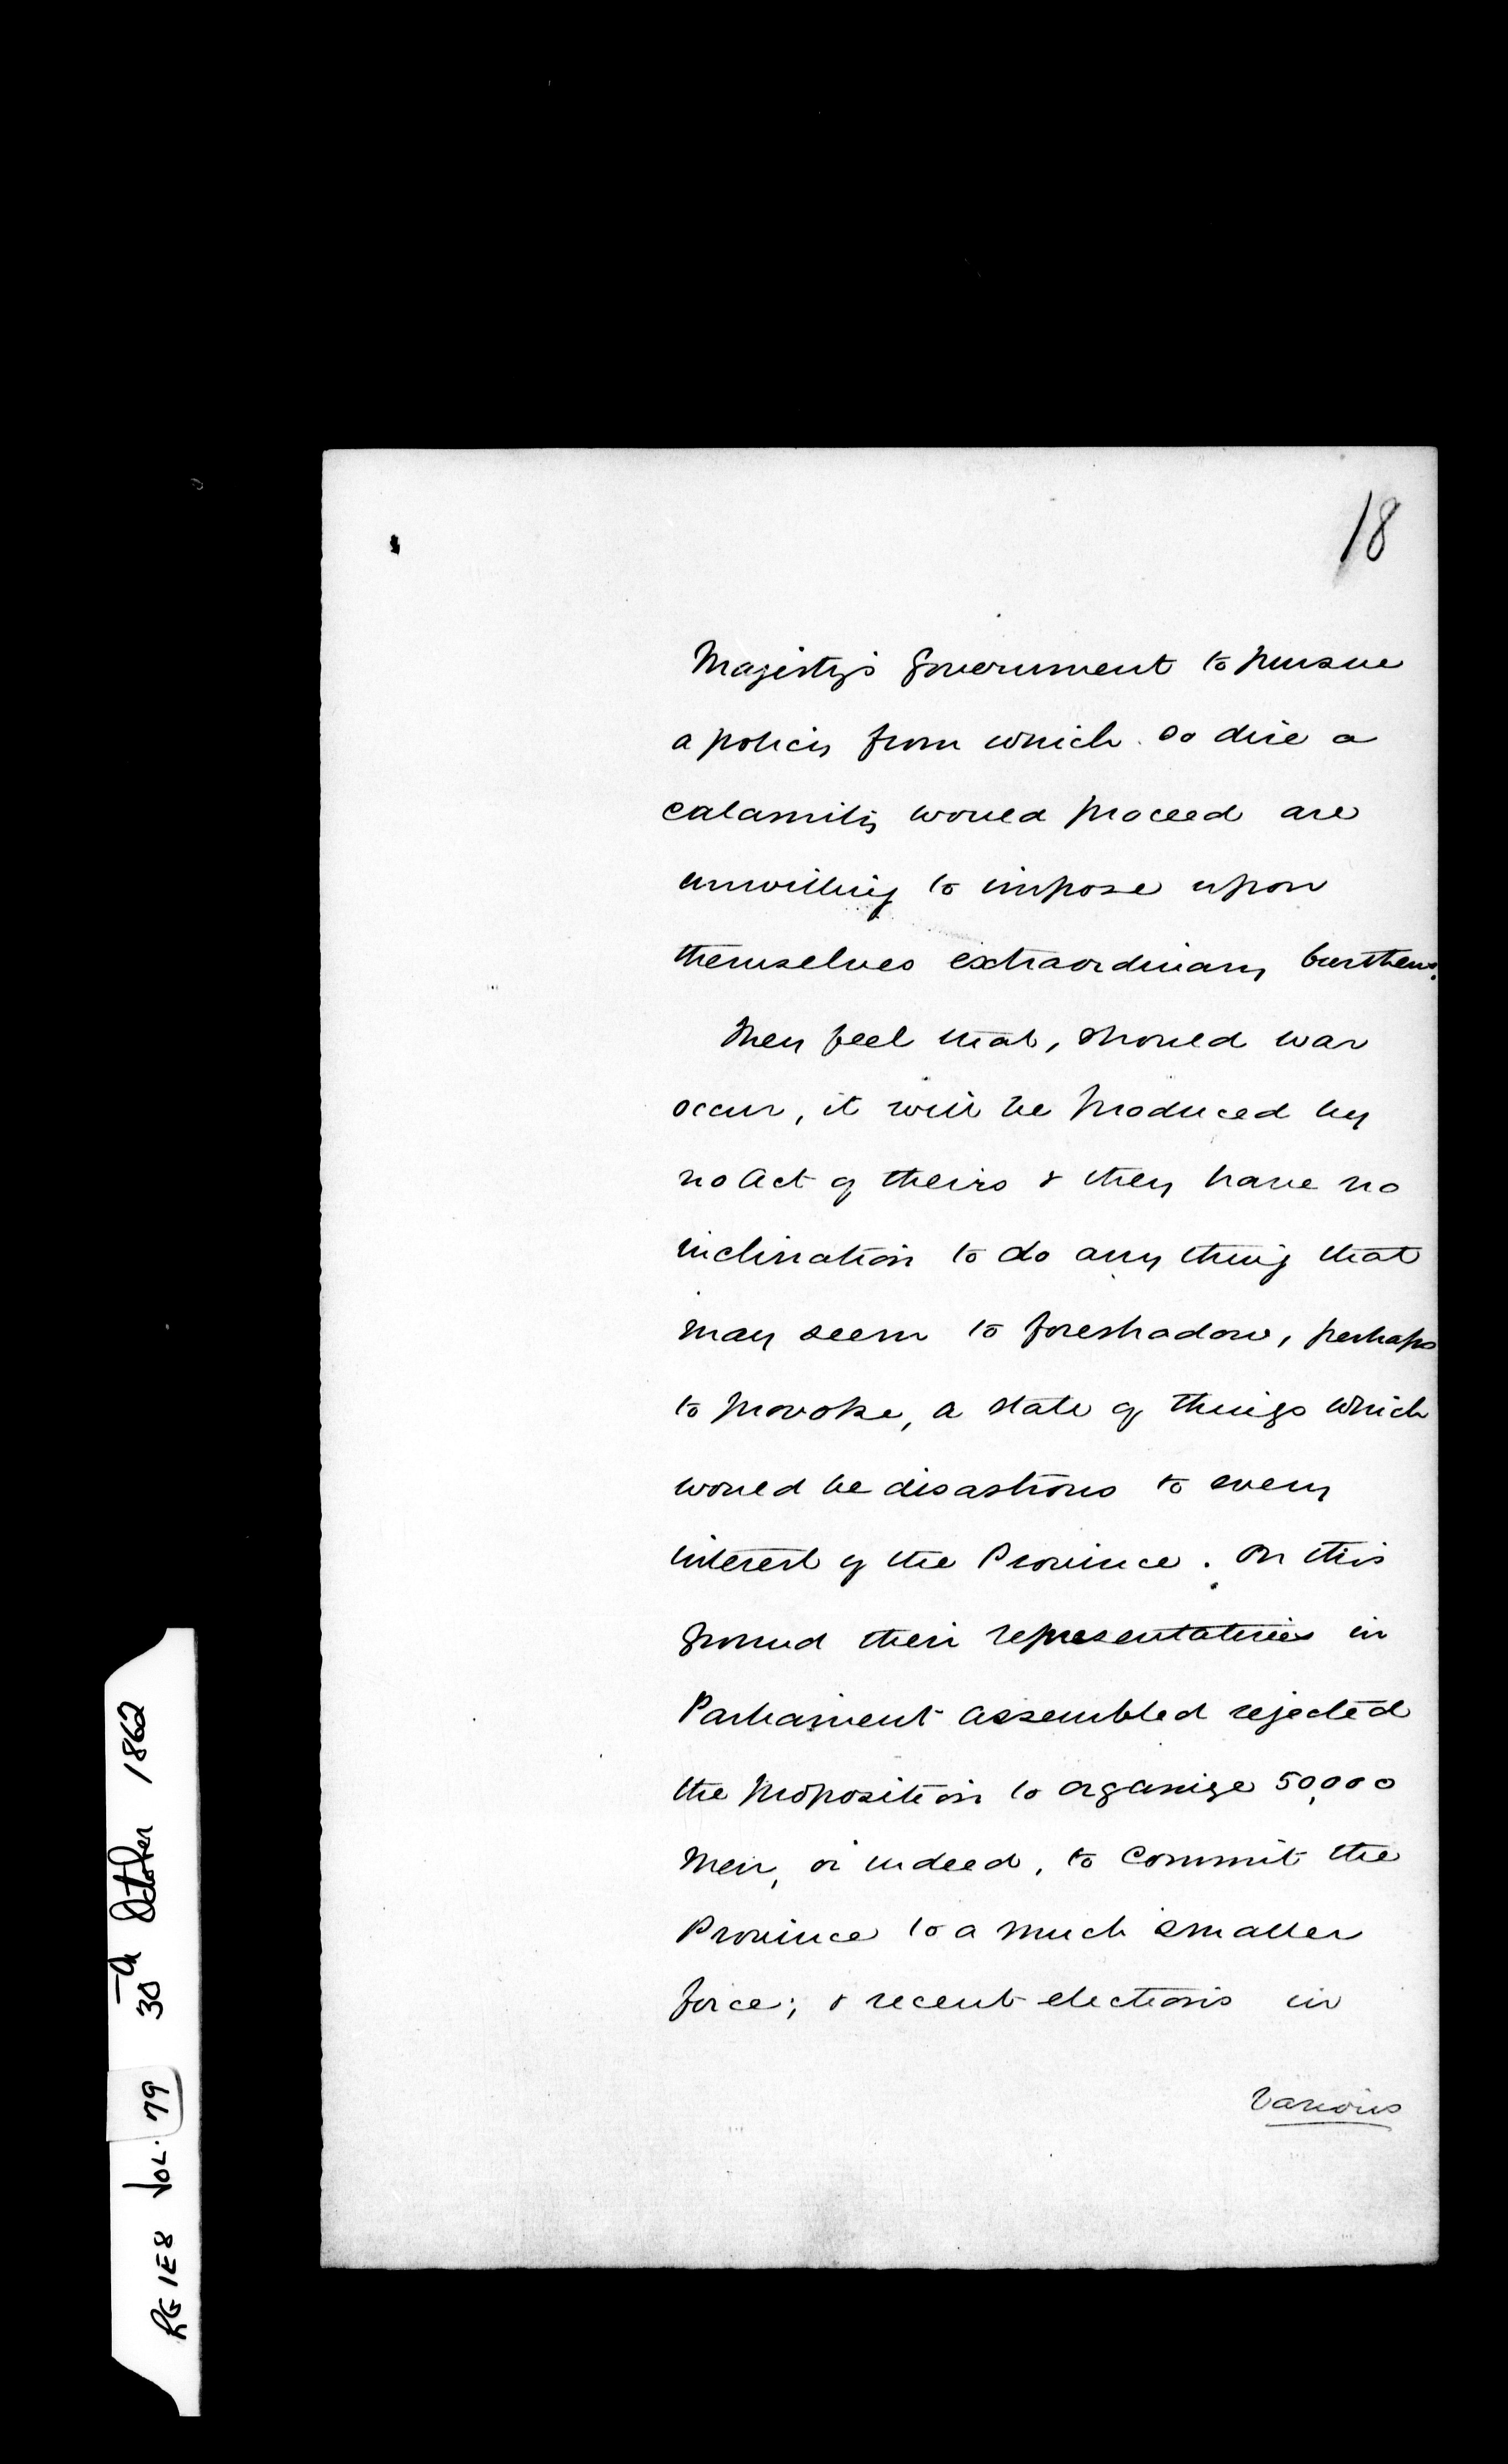 18
Majesty's Government to pursue
a policy from which so dire a
calamity would proceed are
unwilling to impose upon
themselves extraordinary burthens.
They feel that, should war
occur, it will be produced by
no act of theirs & they have no
inclination to do any thing that
may seem to foreshadow, perhaps
to provoke, a state of things which
would be disastrous to every
interest of the Province. On this
ground their representatives in
Parliament assembled rejected
the proposition to organize 50,000
men, or indeed, to commit the
Province to a much smaller
force; & recent elections in
various
RG 1E8 VOL. 79 30th October 1862